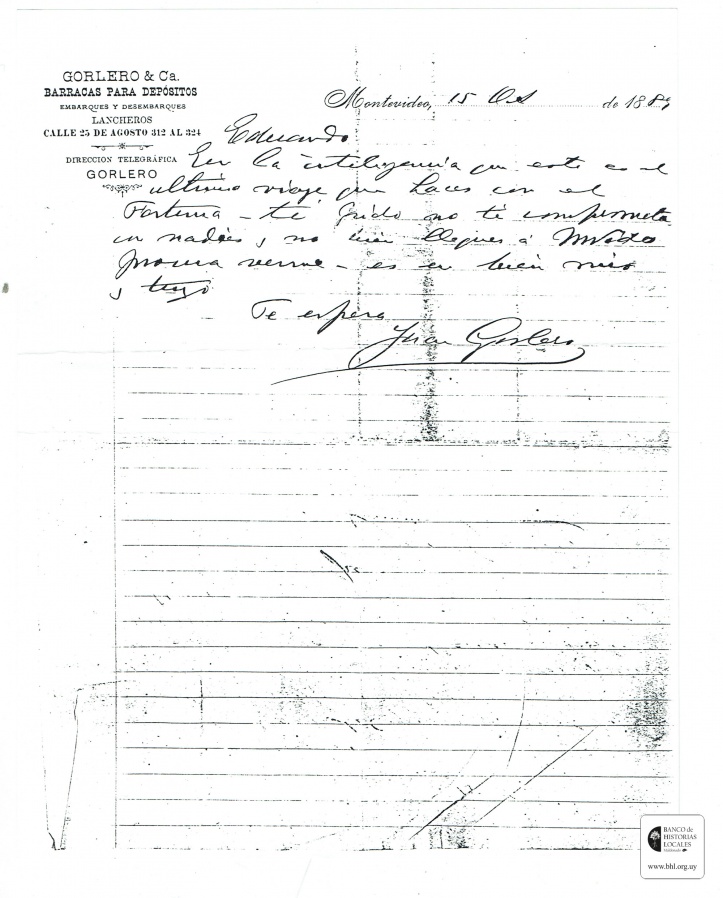 GORLERO & Ca.
BARRACAS PARA DEPÓSITOS
EMBARQUES Y DESEMBARQUES
LANCHEROS
CALLE 25 DE AGOSTO 312 AL 324
DIRECCION TELEGRÁFICA
GORLERO
Montevideo, 15 Oct de 1889
Eduardo
En la inteligencia que este es el
ultimo viaje que haces con el
Fortuna - te pido no te comprometa
con nadies y no bien llegues á Mvdeo
procura verme - es en bien mio
y tuyo
Te espera
Juan Gorlero
BANCO de
HISTORIAS
LOCALES
www.bhl.org.uy